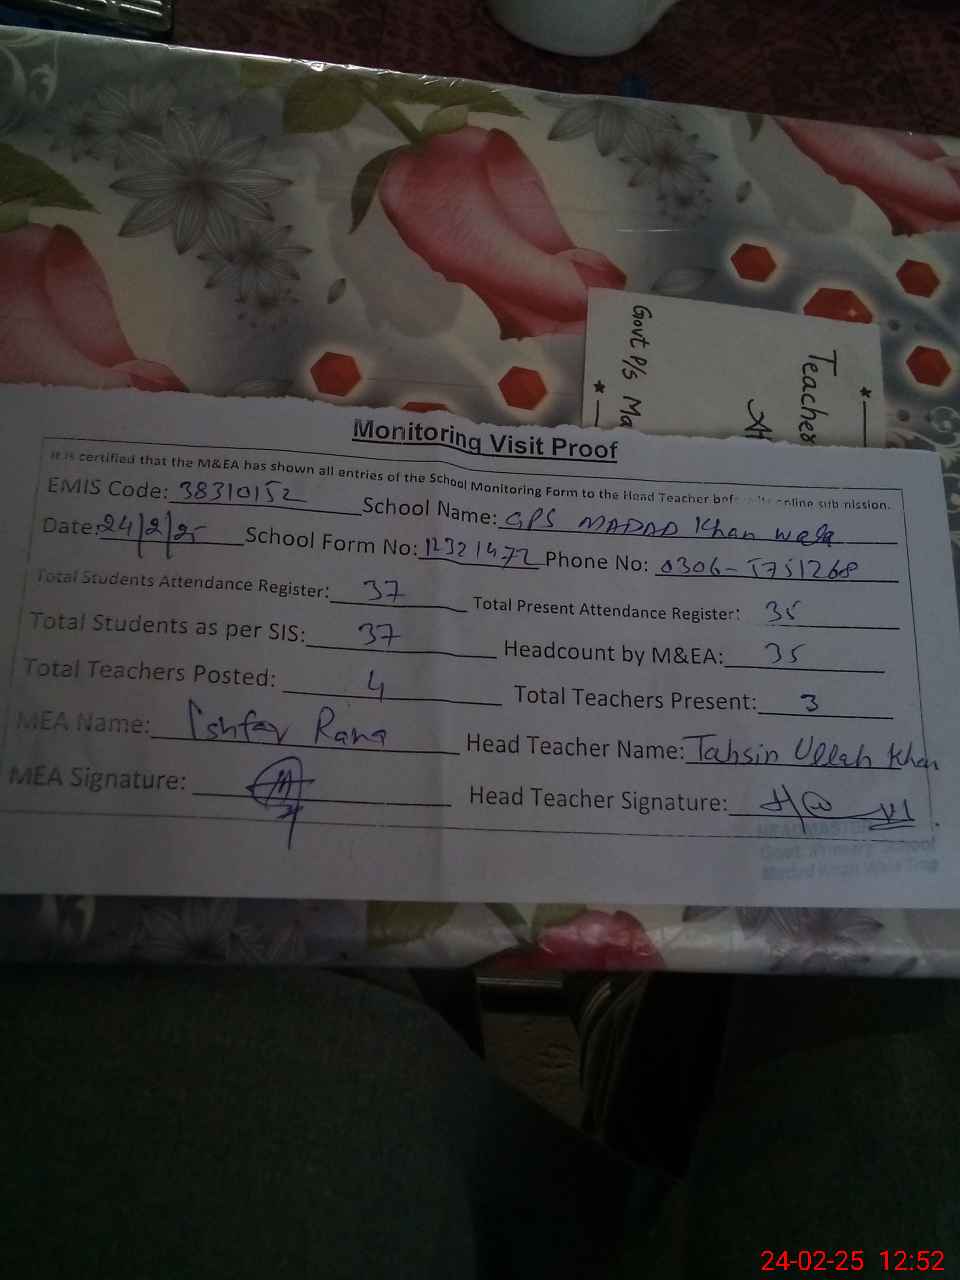 Govt P/S Ma
Teacher
Monitoring Visit Proof
It is certified that the M&EA has shown all entries of the School Monitoring Form to the Head Teacher before its online submission.
EMIS Code: 38310152 School Name: GPS MADAD Khan wala
Date: 24/2/25 School Form No: 12321472 Phone No: 0306-5751268
Total Students Attendance Register: 37 Total Present Attendance Register: 35
Total Students as per SIS: 37 Headcount by M&EA: 35
Total Teachers Posted: 4 Total Teachers Present: 3
MEA Name: Rana Head Teacher Name: Tahsin Ullah Khan
MEA Signature: Head Teacher Signature:
HEADMASTER
Govt. Primary School
Madad Khan Wala
24-02-25 12:52